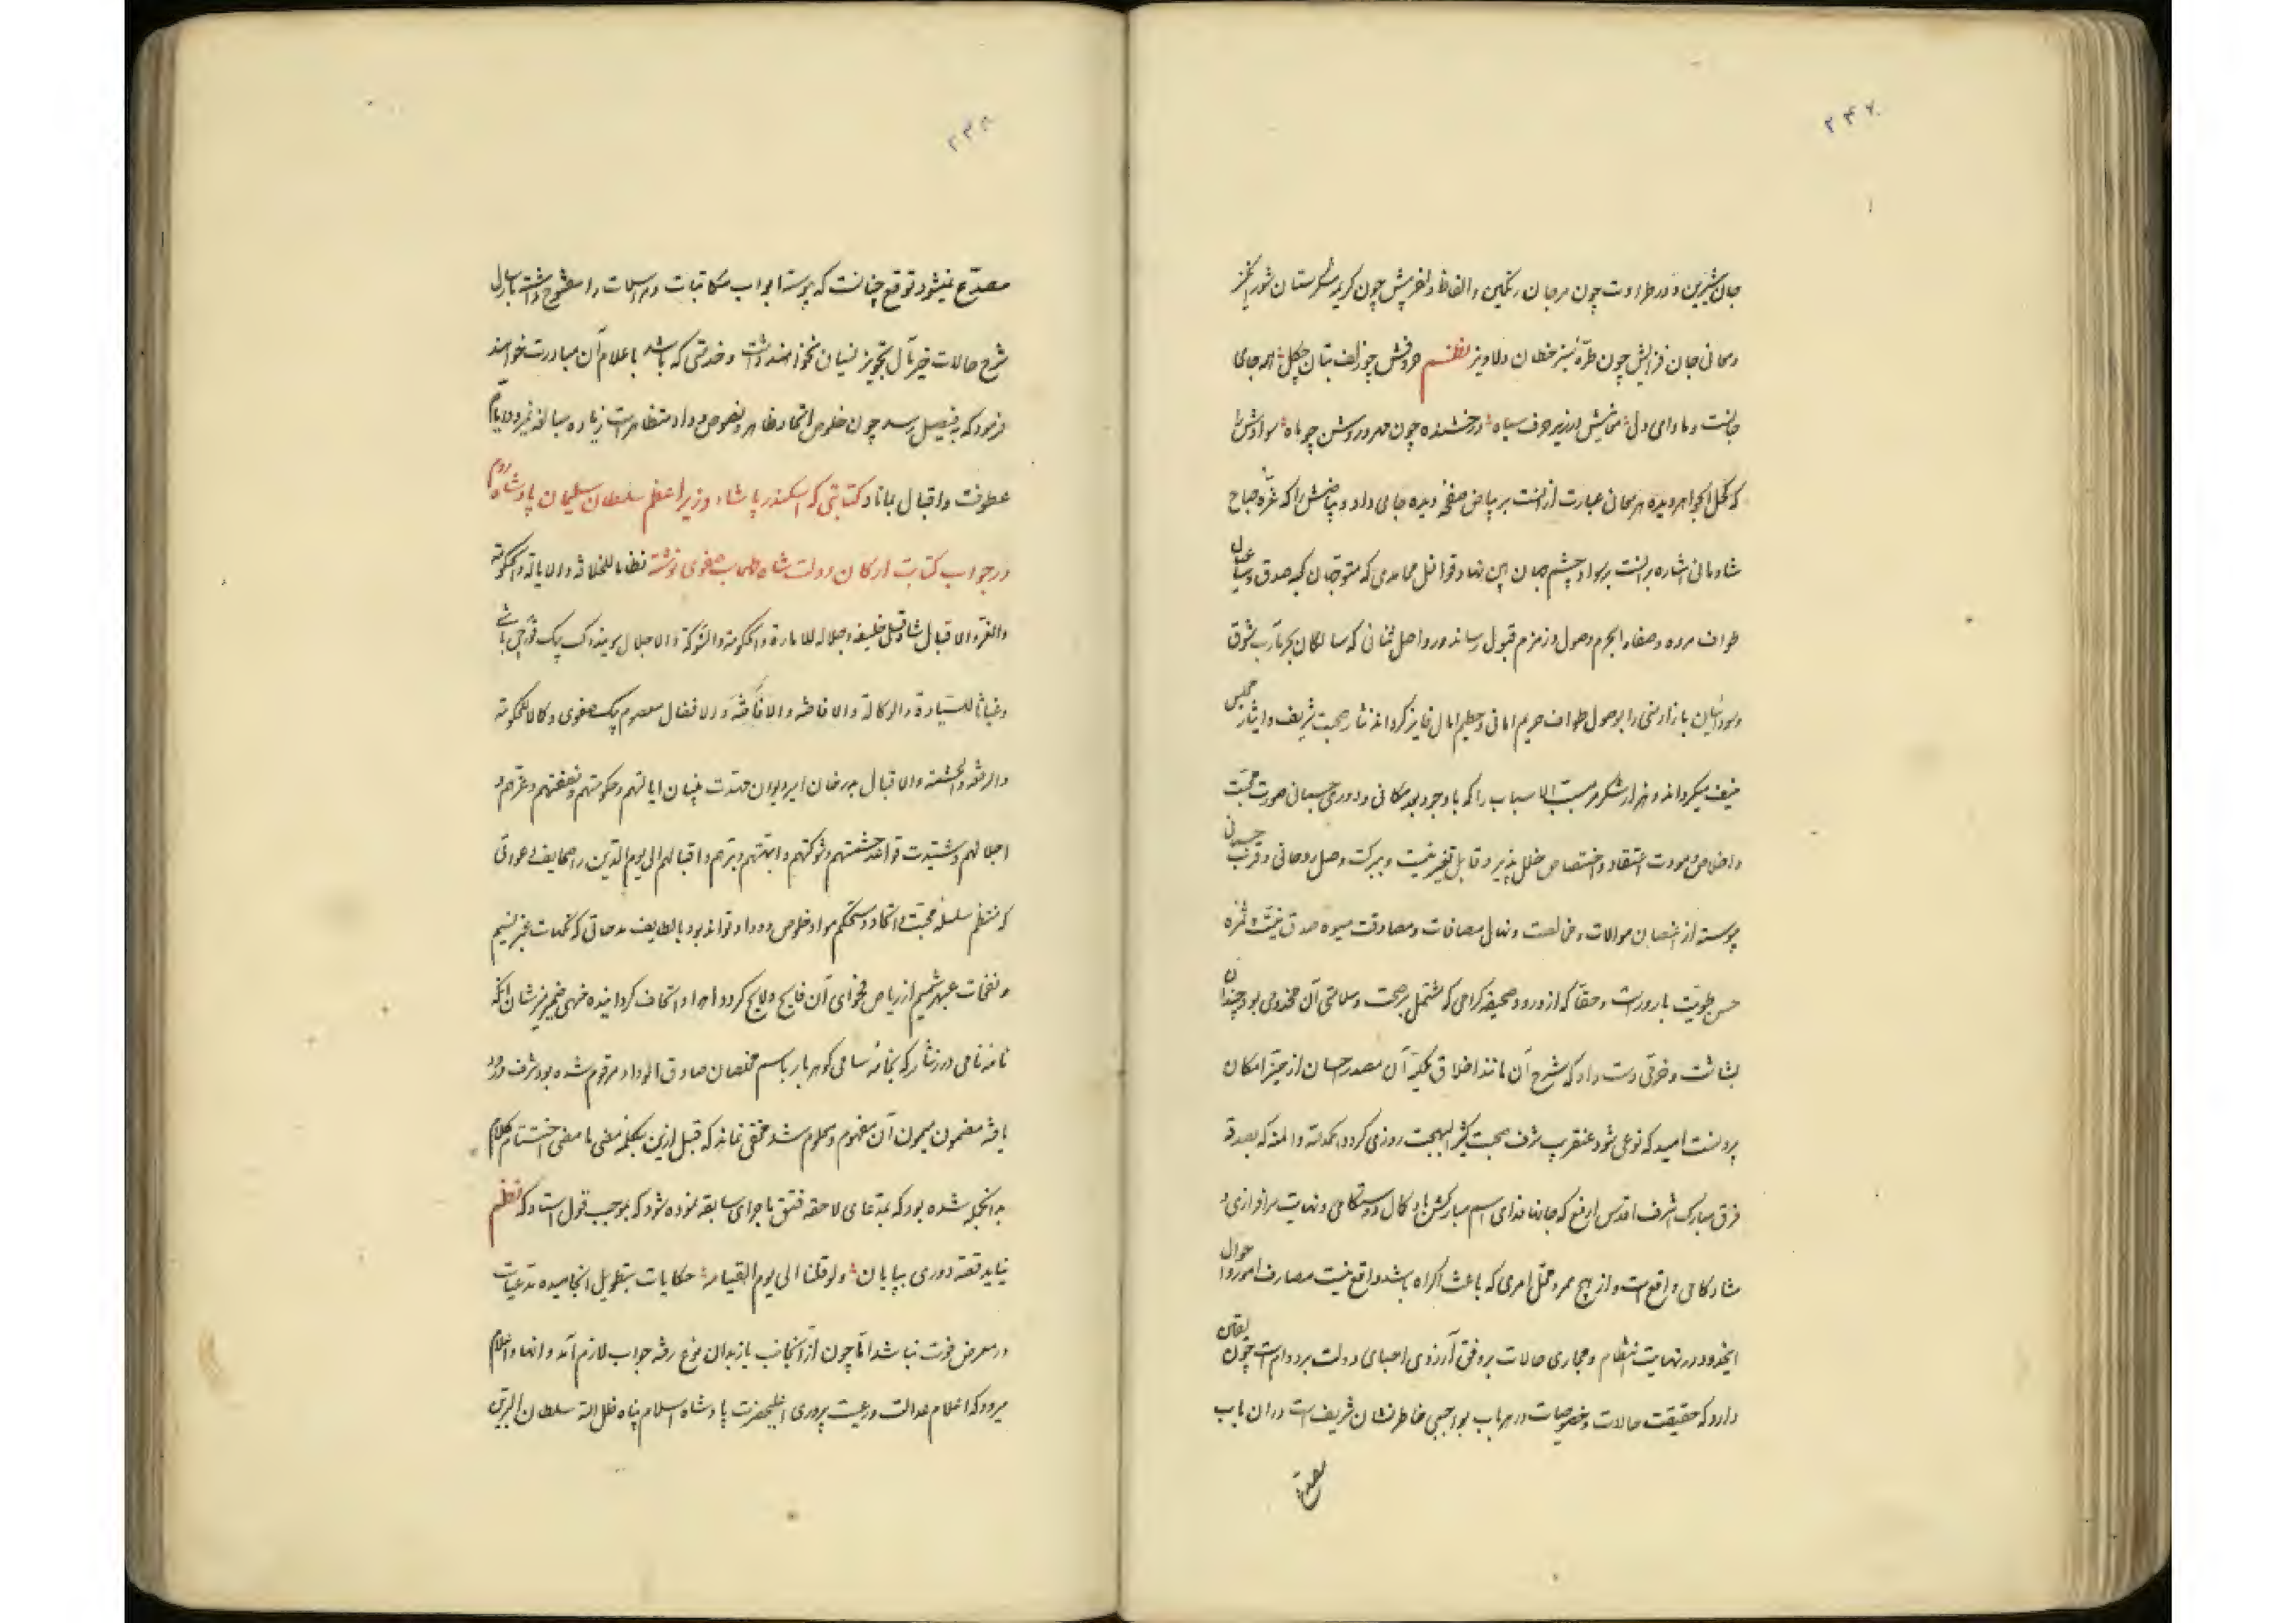 ۲۴۷
جان شیرین و در طراوت چون مرجان رنگین و الفاظ دلفریبش چون کریمه شکرستان شورانگیز
و معانی جان فزایش چون طرّهٔ سبز خطان دلاویز نظم حروفش چو زلف بتان چگل همه جای
جانست و ماوای دل معانیش در زیر حرف سیاه درخشنده چون مهر و روشن چو ماه سوادش را
که کحل الجواهر دیده هر معانی عبارت از آنست بر بیاض صفحهٔ دیده جای داد و بیاضش را که غرّه صباح
شادمانی اشاره بدانست بر سواد چشم جهان بین نهاد قوافل محامدی که متوجهان کعبه صدق و صفا
طواف مروه و صفا و ابحرم وصول و زمزم قبول رساند و رواحل ثنائی که سالکان بحر مآرب شوق
و سودائیان بازار منی را بوصول طواف حریم امانی و حطیم امال فایز گرداند نثار صحبت شریف و ایثار مجلس
منیف میگرداند و هزار شکر مر مسبب الاسباب را که با وجود بعد مکانی و دوری جسمانی صورت محبت
و اخلاص و مودت اعتقاد و اختصاص خلل پذیر و قابل تغیر نیست و ببرکت وصل روحانی و قرب جسدانی
پیوسته از اغصان موالات و مخالصت و نهال مصافات و مصادقت میوه صدق نیّت و ثمره
حسن طویّت بارورست و حقّا که از ورود صحیفه گرامی که مشتمل بر صحت و سلامتی آن مخدومی بود چندان
بشاشت و خرّمی دست داد که شرح آن مانند اخلاق ملکیّه آن مصدر احسان از حیّز امکان
بیرونست امید که نوعی شود عنقریب شرف صحبت کثیر البهجت روزی گردد الحمدلله و المنه که بصدقه
فرق مبارک اشرف اقدس ارفع که جانها فدای اسم مبارکش باد کمال دوستکامی و نهایت سرافرازی و
شادکامی واقع است و از هیچ ممر و محل امری که باعث اکراه باشد واقع نیست مصارف امور و احوال
اینحدود در نهایت انتظام و مجاری حالات بر وفق آرزوی احبای دولت بر دوام است چون یقین
دارد که حقیقت حالات و خصوصیات در هر باب بواجبی خاطر نشان شریف است در ان باب
مصدّع
۲۴۸
مصدّع نمیشود توقع چنانست که پیوسته ابواب مکاتبات و مراسلات را مفتوح داشته بارسال
شرح حالات خیر مآل تجویز نسیان نخواهند داشت و خدمتی که باشد باعلام آن مبادرت خواهند
فرمود که بفیصل رسد چون خلوص اتحاد ظاهر و نصوص وداد متظاهر است زیاده مبالغه نمیرود ایام
عطوفت و اقبال بماناد کتابتی که اسکندر پاشاء وزیر اعظم سلطان سلیمان پادشاه روم
در جواب کتابت ارکان دولت شاه طهماسب صفوی نوشته نظاما للخلافه و الایاله و الحکومة
و العز و الاقبال شاه قلی خلیفه و جلالا للامارة و الحکومة و الشوکة و الاجلال سوندک بیک قورچی باشی
و غیاثا للسیادة و الوکالة و الافاضه و الافضال معصوم بیک صفوی و کمالا للحکومة
و الرفعه و الحشمة و الاقبال بدر خان امیر دیوان مهّدت بنیان ایالتهم و حکومتهم و نصفتهم و عزّهم و
اجلالهم و شیّدت قواعد حشمتهم و شوکتهم و ابهتهم و اقبالهم الی یوم الدین را صحایف دعواتی
که منتظم سلسله محبّت و اتحاد و مستحکم مواد خلوص و وداد تواند بود با لطایف مدحاتی که نکهات عنبر نسیم
و نفحات عبهر شمیم از ریاض فحوای آن فایح و لایح گردد اهدا و اتحاف گردانیده منهی ضمیر منیر ایشان آنکه
نامهٔ نامی درر نثار که بخامهٔ سامی گوهر بار باسم مخلصان صادق الوداد مرقوم شده بود شرف ورود
یافته مضمون میمون آن مفهوم و معلوم شد مخفی نماند که قبل ازین بکلمه مضی ما مضی اختتام کلام
بدانجمله شده بود که بمدعای لاحقه فتق ماجرای سابقه نموده شود که بموجب قول استاد که نظم
نیاید قصه دوری بپایان و لو قلنا الی یوم القیامه حکایات بتطویل انجامیده مدعیات
در معرض فوت نباشد امّا چون از آنجانب باز بدان نوع رفته جواب لازم آمد و انها و اعلام
میرود که اعلام عدالت و رعیت پروری اعلیحضرت پادشاه اسلام پناه ظل الله سلطان البرین